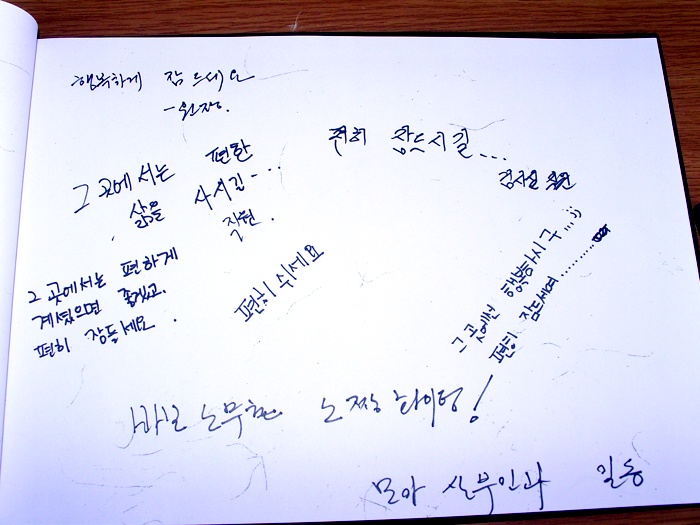 행복하게 잠드세요
-원장.
편히 잠드시길...
검사실 직원
그 곳에서는 편한
삶을 사시길...
직원.
그 곳에서는 편하게
계셨으면 좋겠고.
편히 잠들세요.
편히 쉬세요
그 곳에선 행복하시구...;;
편히 잠드세여..........
바보 노무현 노짱 화이팅!
모아 산부인과 일동